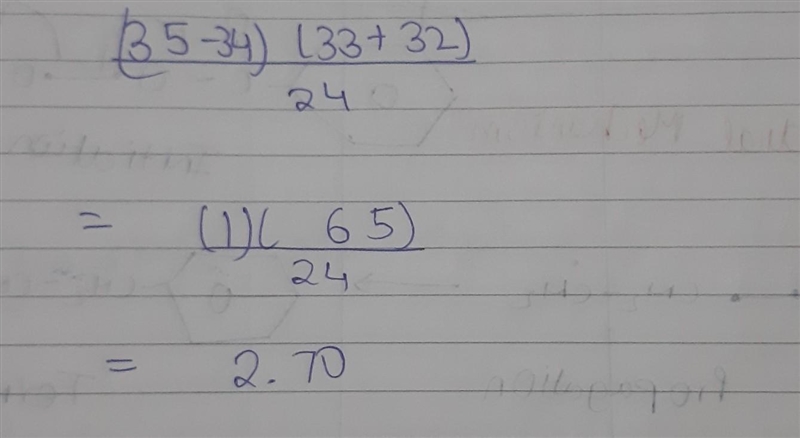 (35-34) (33+32)
24
= (1)( 65)
24
= 2.70